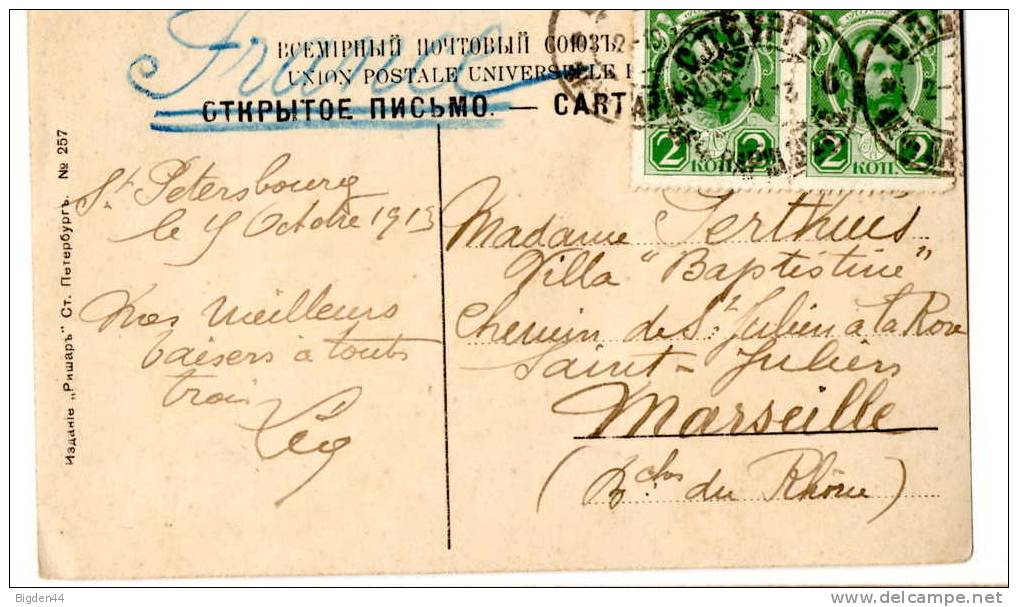 France
ВСЕМІРНЫЙ ПОЧТОВЫЙ СОЮЗЪ
UNION POSTALE UNIVERSELLE
ОТКРЫТОЕ ПИСЬМО. — CARTA
2 2
КОП. КОП.
Изданіе „Ришаръ" Ст. Петербургъ. № 257
St Petersbourg
le 15 Octobre 1913
Mes meilleurs
baisers à toutes
trois
Léo
Madame
Villa "Baptistine"
Chemin de St Julien à la Rose
Saint-Julien
Marseille
(B. ches du Rhône)
Bigden44
delcampe.net